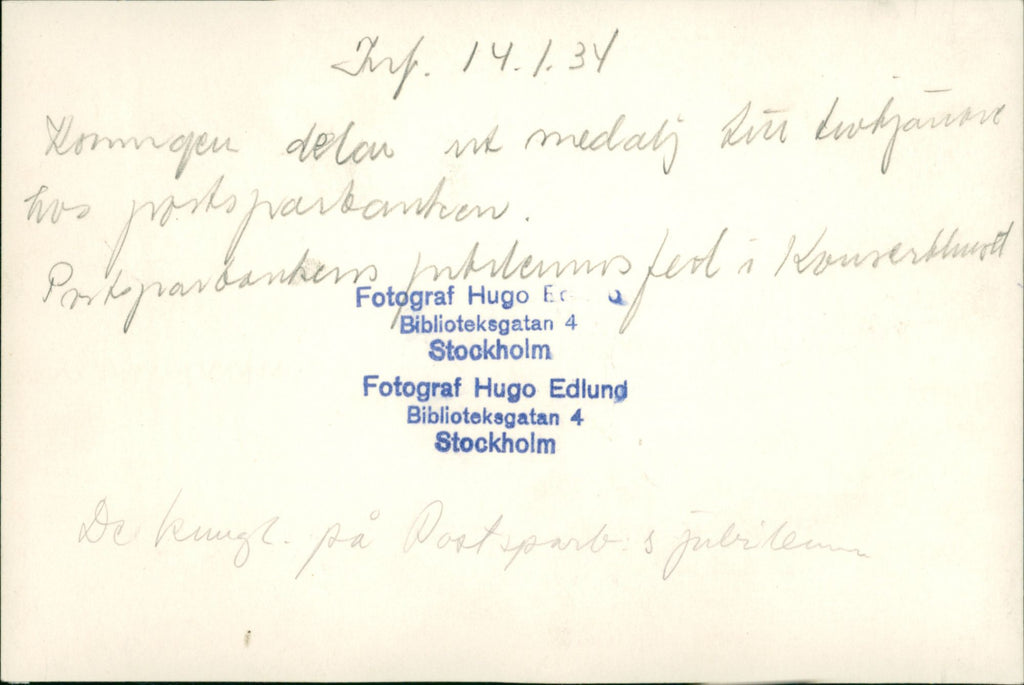 14.1.34
Konungen delar ut medalj till trotjänare
hos postsparbanken.
Postsparbankens jubileumsfest i Konserthuset
Fotograf Hugo
Biblioteksgatan 4
Stockholm
Fotograf Hugo Edlund
Biblioteksgatan 4
Stockholm
De kungl. på Postsparb:s jubileum